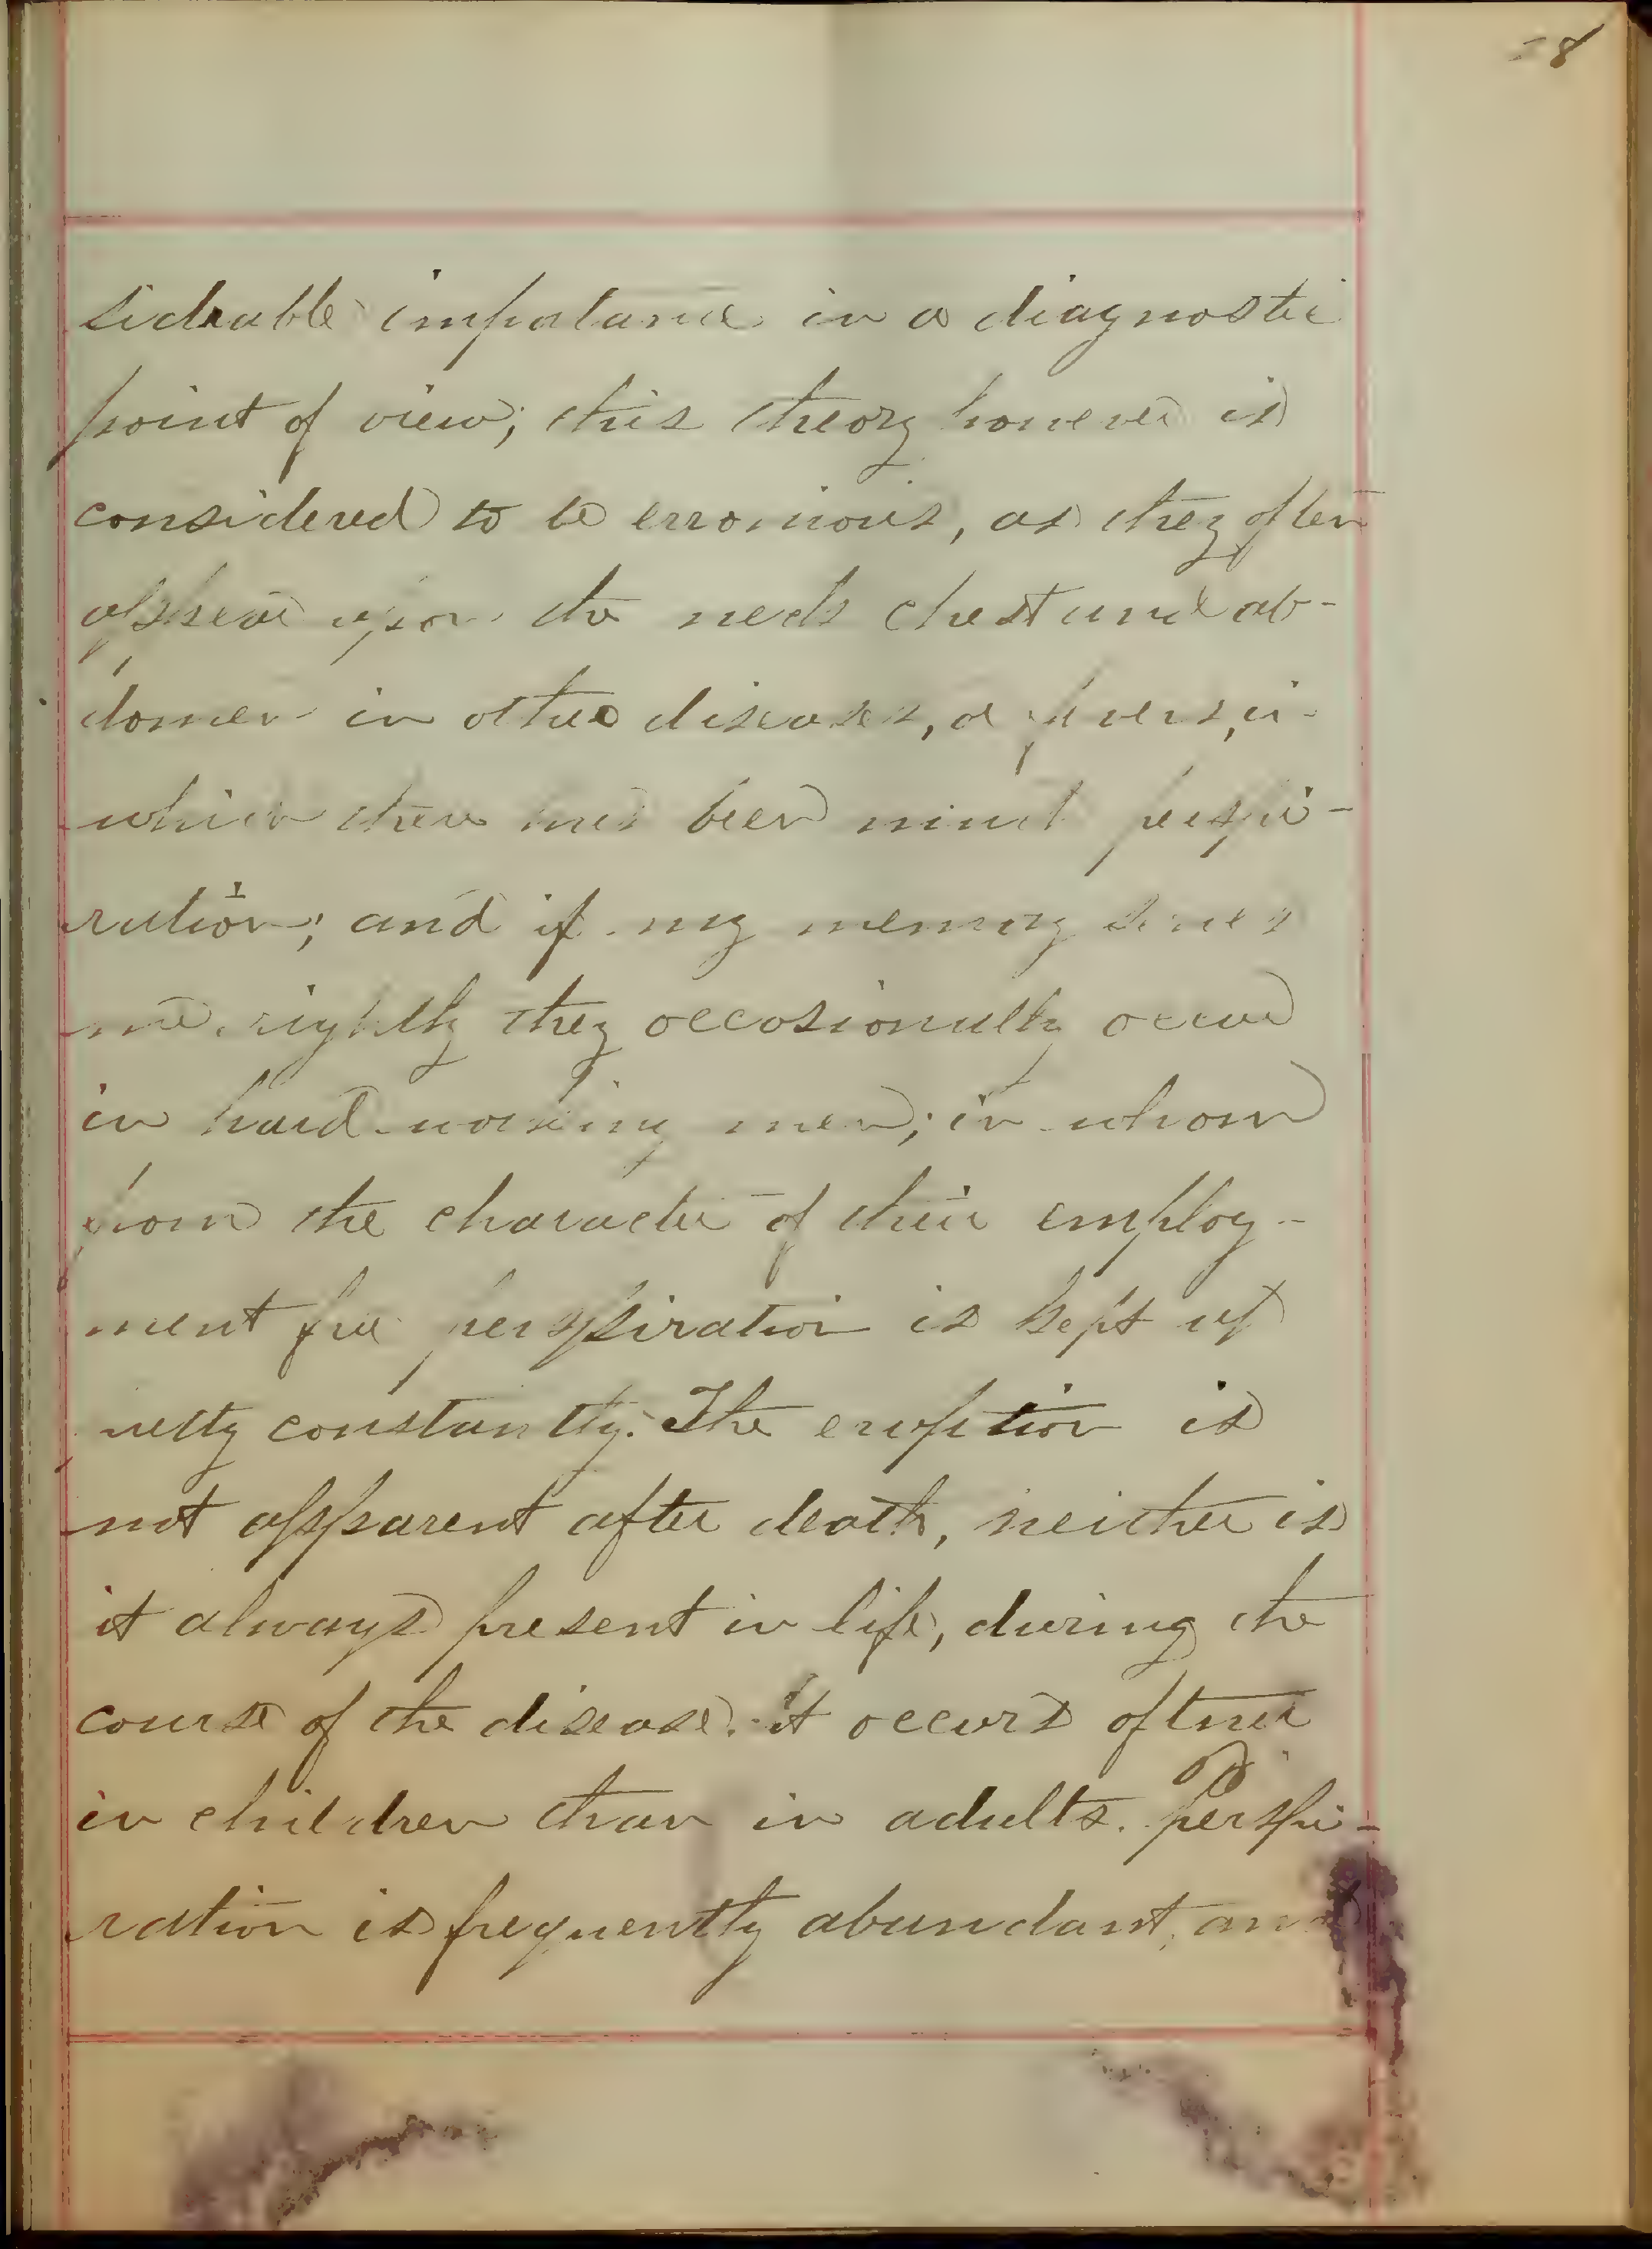 8
siderable importance in a diagnostic
point of view; this theory however is
considered to be erronious, as they often
appear upon the neck chest and ab-
domen in other diseases, or fevers, in
which there has been much perspi-
ration; and if my memory serves
me rightly they occasionally occur
in hard-working men; in whom
from the character of their employ-
ment free perspiration is kept up
pretty constantly. The eruption is
not apparent after death, neither is
it always present in life, during the
course of the disease. it occurs oftner
in children than in adults. Perspi-
ration is frequently abundant, and